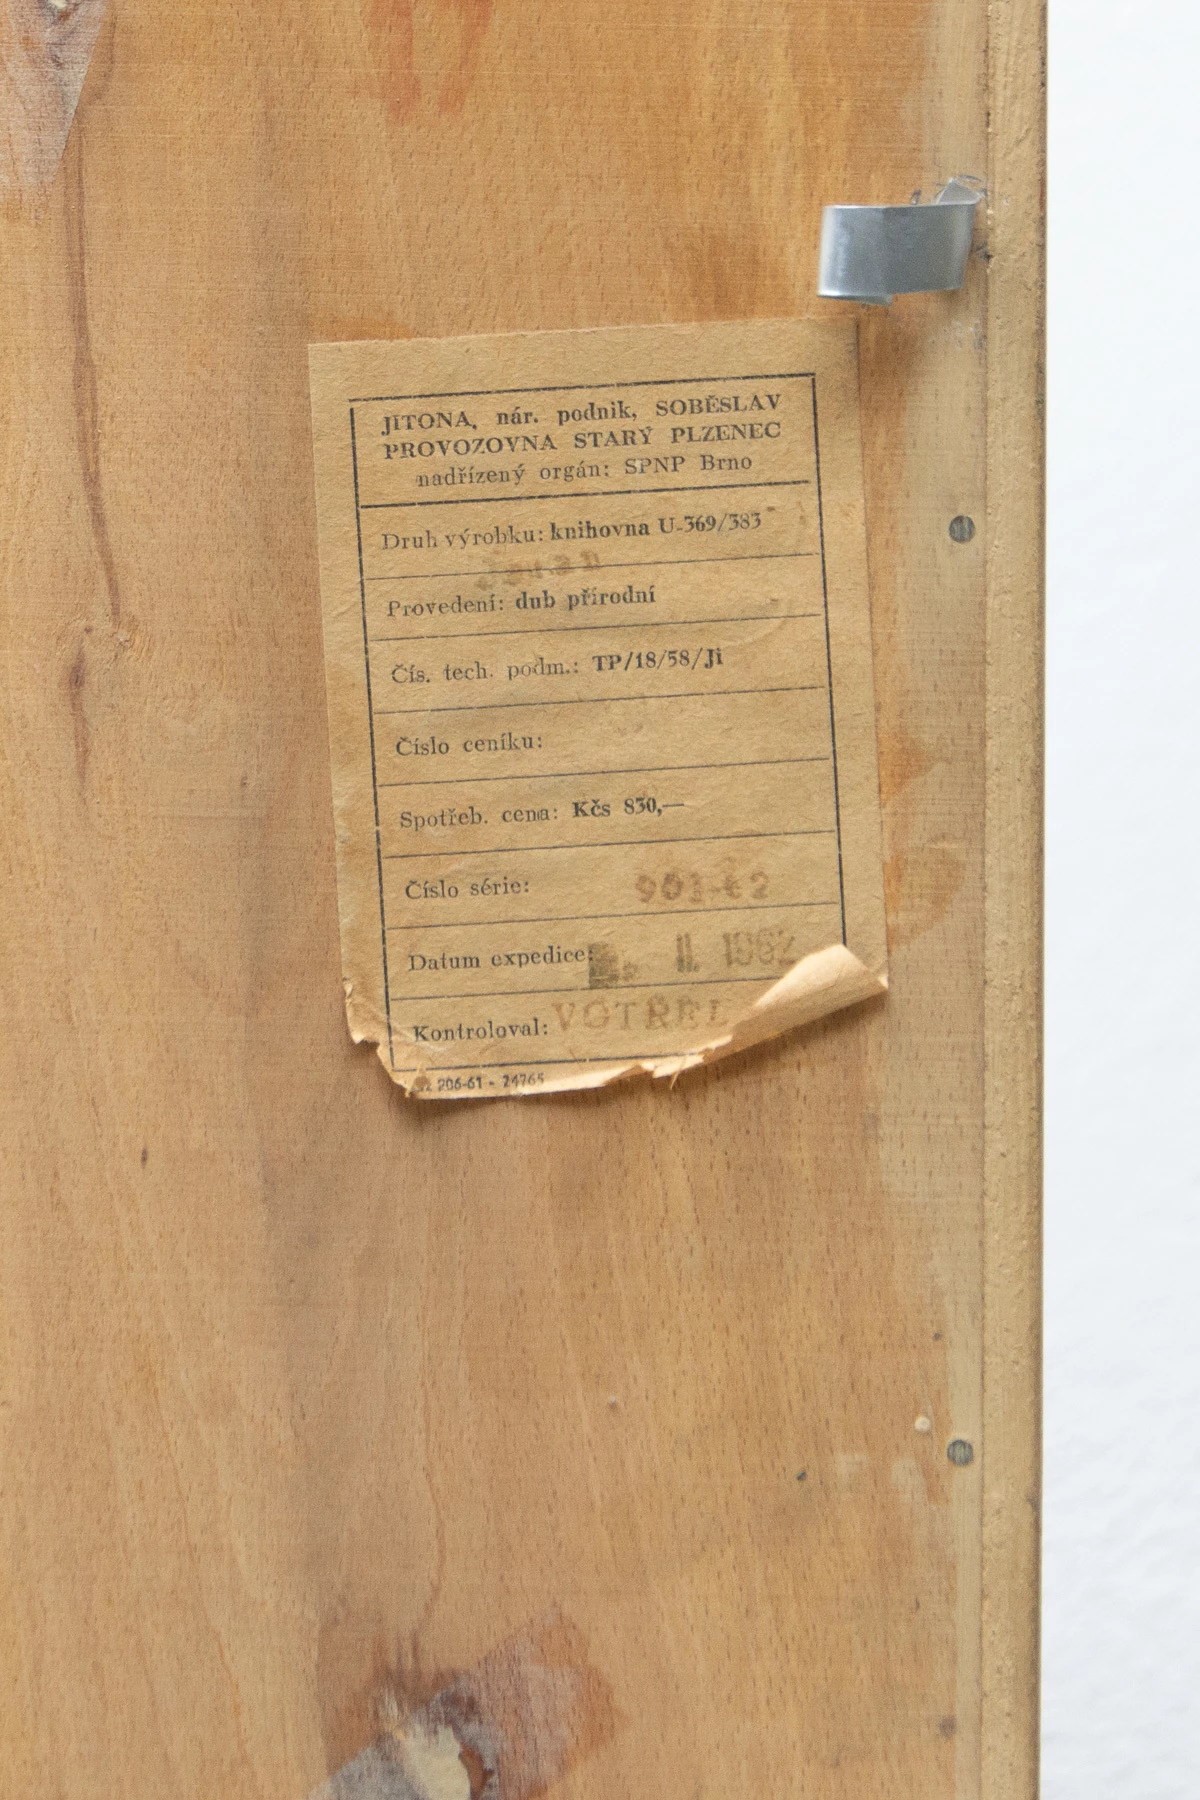 JITONA, nár. podnik, SOBĚSLAV
PROVOZOVNA STARÝ PLZENEC
nadřízený orgán: SPNP Brno
Druh výrobku: knihovna U-369/383
Provedení: dub přírodní
Čís. tech. podm.: TP/18/58/Ji
Číslo ceníku:
Spotřeb. cena: Kčs 830,—
Číslo série: 901-62
Datum expedice: II. 1962
Kontroloval: VOTŘEL
206-61 - 24765